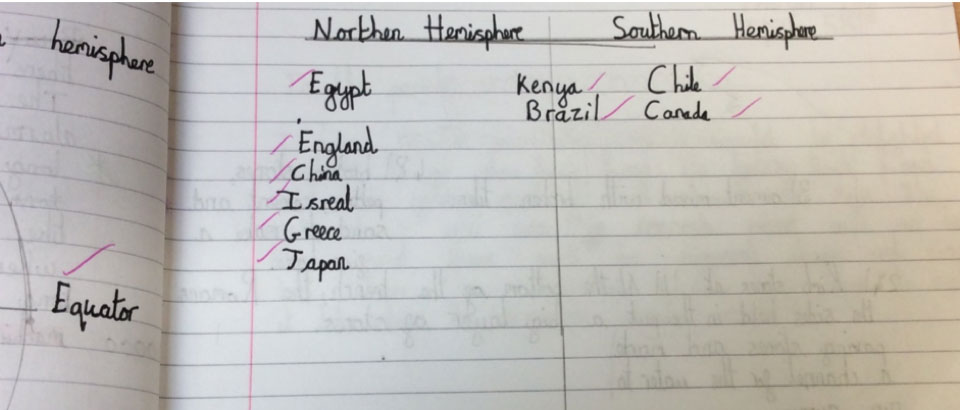 hemisphere
Equator
Northen Hemisphere Southern Hemisphere
Egypt Kenya Chile
Brazil Canada
England
China
Isreal
Greece
Japan